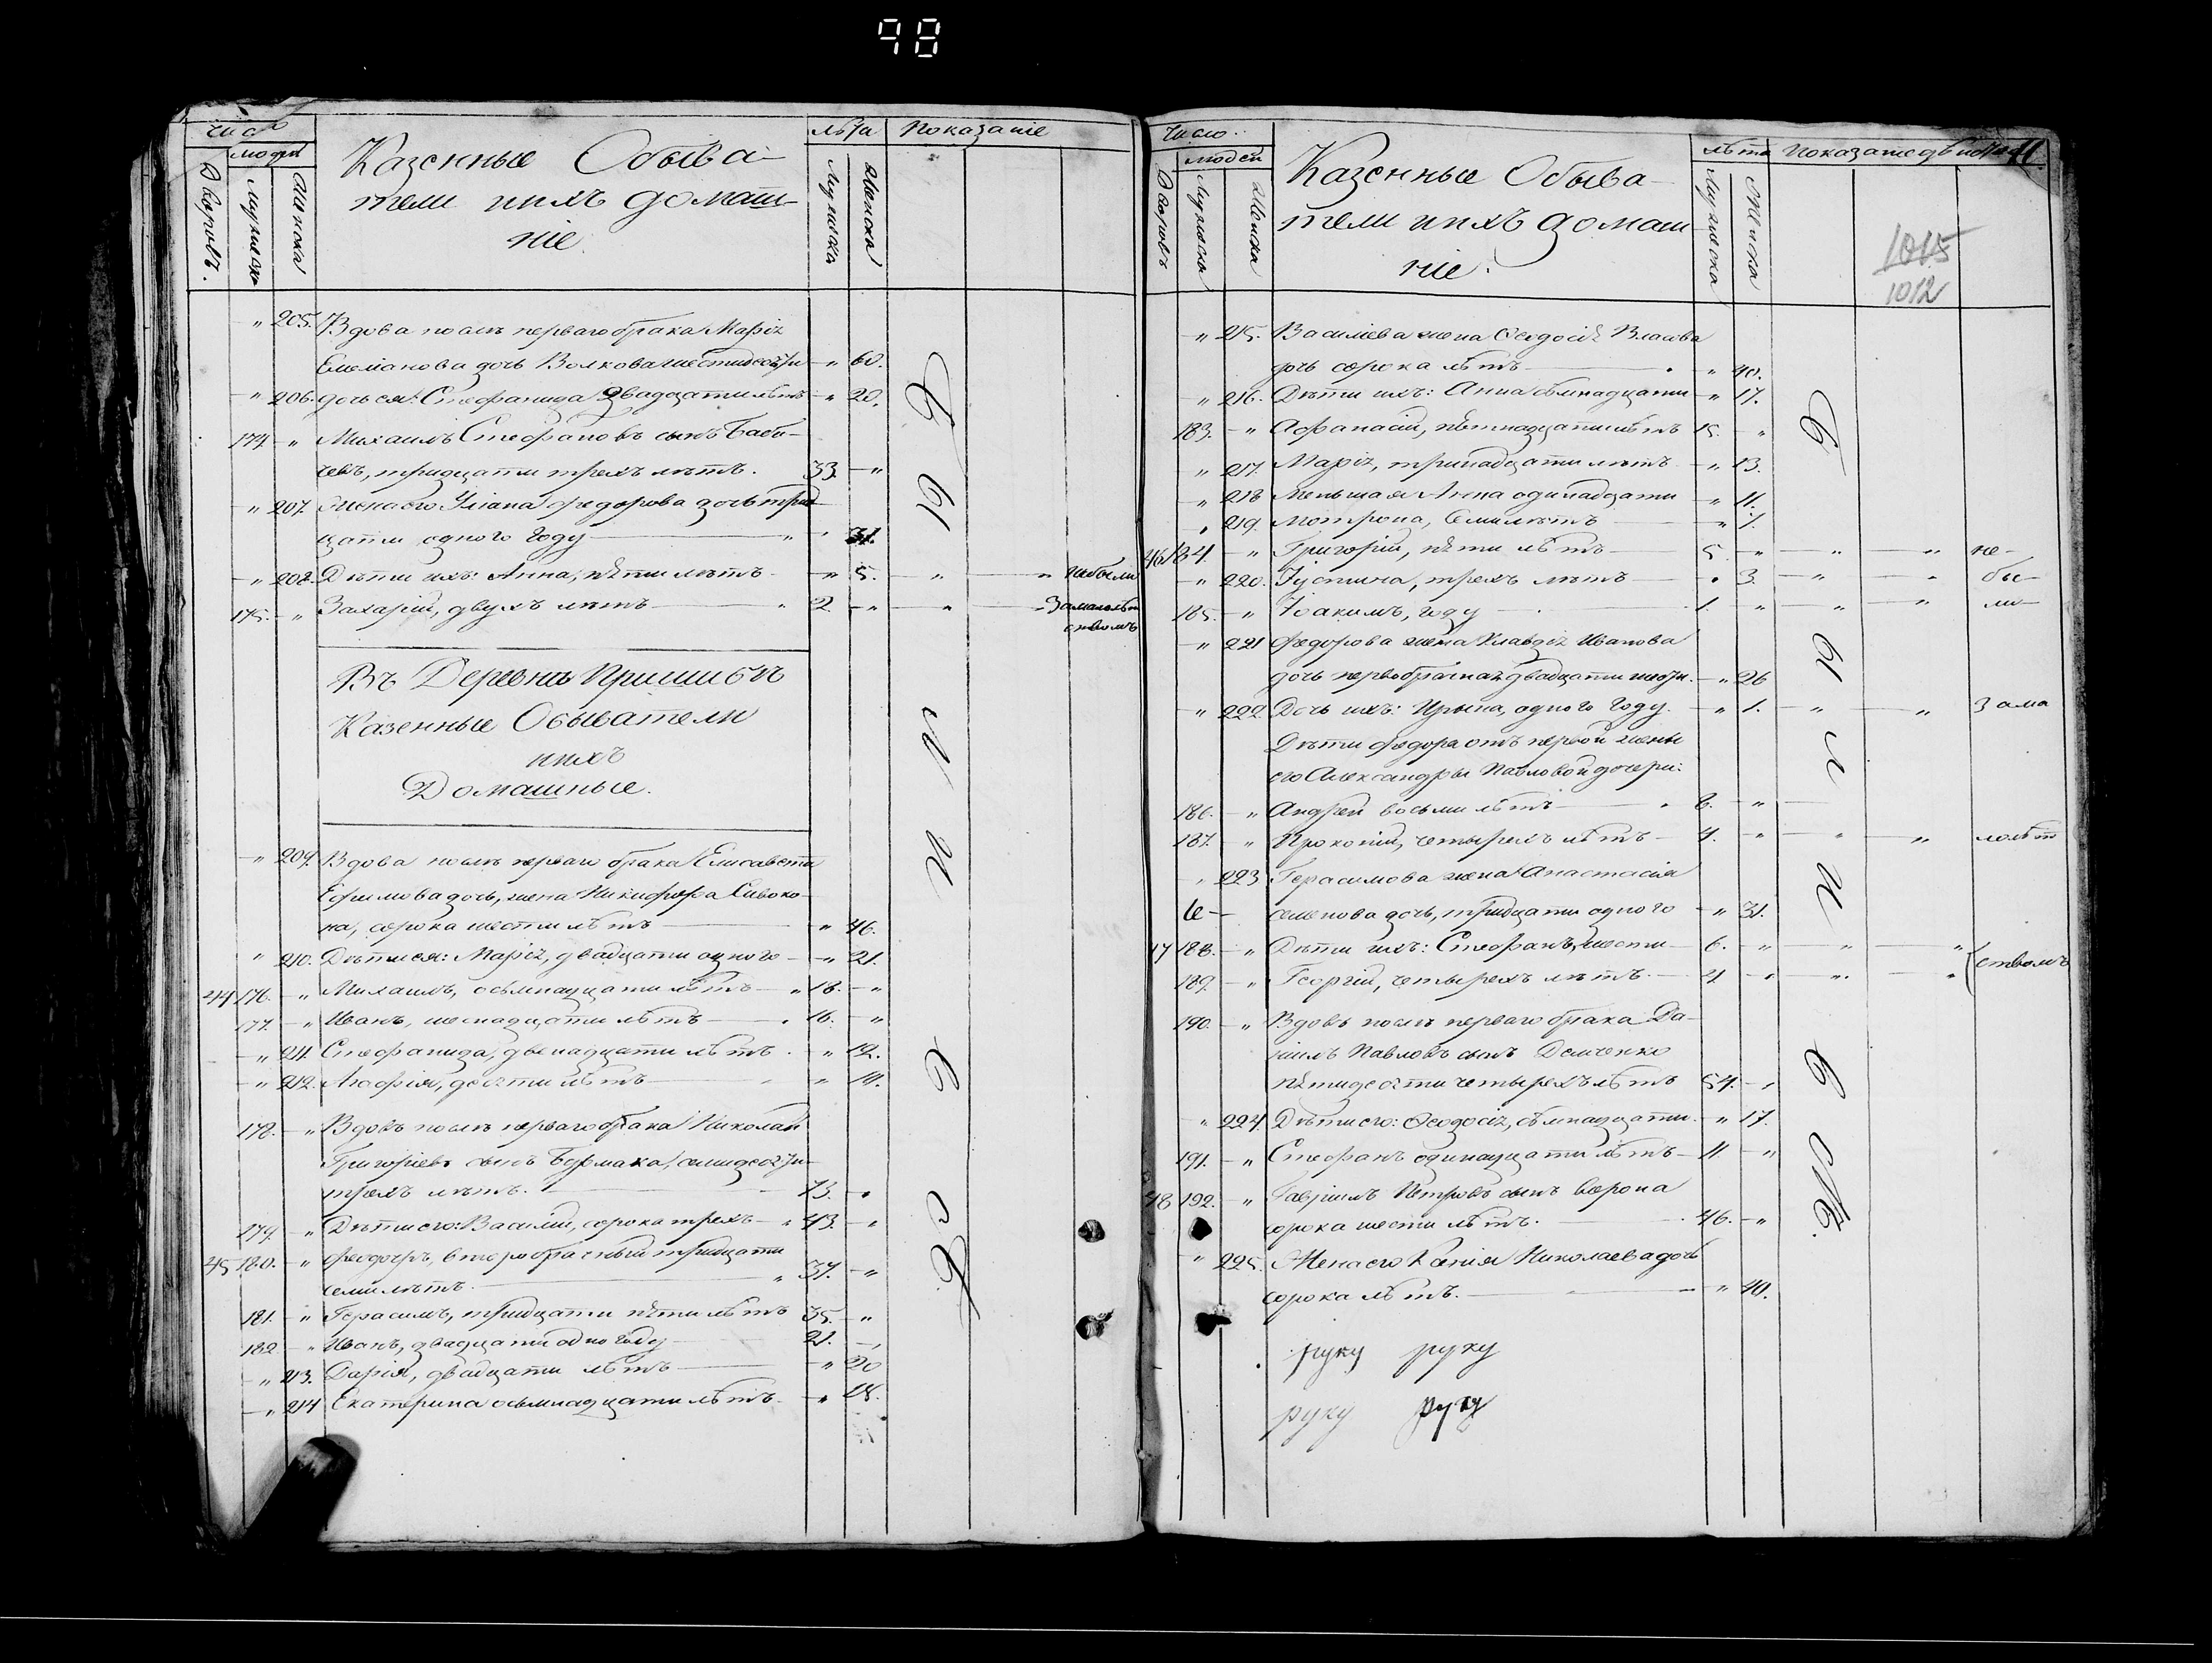 98
Число
людей
Дворовъ.
Мужеска
Женска
Казенные Обыва-
тели ихъ домаш-
ніе.
лѣта
Мужеска
Женска
Показаніе
" 205. Вдова послѣ перваго брака Марія
Емелианова дочь Волкова шестидесяти " 60.
" 206. дочь ея: Стефанида двадцати лѣтъ " 20.
174 " Михаилъ Стефановъ сынъ Баби-
чевъ, тридцати трехъ лѣтъ. 33. "
" 207. Жена его Уліана Федорова дочь трид-
цати одного году " 31.
" 208. Дѣти ихъ: Анна, пяти лѣтъ " 5. " " небыли
175. " Захарій, двухъ лѣтъ " 2. " " За малолѣт
ствомъ
Въ Деревнѣ Пришибѣ
Казенные Обыватели
ихъ
Домашные.
" 209. Вдова послѣ перваго брака Елисавета
Ефимова дочь, жена Никифора Сивоко-
на, сорока шести лѣтъ " 46.
" 210. Дѣти ея: Марія, двадцати одного " 21.
44 176. " Михаилъ, осьмнадцати лѣтъ " 18. "
177. " Иванъ, шеснадцати лѣтъ 16. "
" 211. Стефанида, двенадцати лѣтъ. " 12.
" 212. Агафія, десяти лѣтъ " 10.
178. " Вдовъ послѣ перваго брака Николай
Григоріевъ сынъ Бурмака, семидесяти
трехъ лѣтъ. 73. "
179. " Дѣти его: Василій, сорока трехъ 43. "
45 180. " Феодоръ, второбрачный тридцати
семи лѣтъ. " 37. "
181. " Герасимъ, тридцати пяти лѣтъ 35. "
182 " Иванъ, двадцати одно году 21. "
" 213. Дарія, двадцати лѣтъ " 20
" 214 Екатерина осьмнадцати лѣтъ. " 18.
Были всѣ
Число
людей
Дворовъ
Мужеска
Женска
Казенные Обыва-
тели ихъ домаш
ніе.
лѣта
Мужеска
Женска
Показате
1015
1012
" 215. Василіева жена Феодосія Власова
дочь сорока лѣтъ " 40.
" 216. Дѣти ихъ: Анна семнадцати " 17.
183. " Афанасій, пятнадцати лѣтъ 15. "
" 217. Марія, тринадцати лѣтъ " 13.
" 218 Меньшая Анна одинадцати " 11.
" 219. Мотрона, Семи лѣтъ " 7.
46 184. " Григорій, пяти лѣтъ 5. " " " не-
" 220. Іустина, трехъ лѣтъ " 3. " " бы-
185. " Іоакимъ, году 1. " " " ли
" 221 Федорова жена Клавдія Иванова
дочь первобрачная двадцати шести. " 26
" 222. Дочь ихъ: Ирина, одного году. " 1. " " За ма
Дѣти Федора отъ первой жены
его Александры Павловой дочери:
186. " Андрей восьми лѣтъ 8. "
187. " Прокопій, четырехъ лѣтъ 4. " " " лолѣт
" 223 Герасимова жена Анастасія
Се- семенова дочь, тридцати одного " 31.
47 188. " Дѣти ихъ: Стефанъ, шести 6. " " "
189. " Георгій, четырехъ лѣтъ 4. " " " ствомъ
190. " Вдовъ послѣ перваго брака Да-
ніилъ Павловъ сынъ Демченко
пятидесяти четырехъ лѣтъ 54. "
" 224. Дѣти его: Феодосія, семнадцати. " 17.
191. " Стефанъ одинадцати лѣтъ 11 "
48 192. " Гавріилъ Петровъ сынъ Ворона
сорока шести лѣтъ. 46. "
" 225. Жена его Ксенія Николаева дочь
сорока лѣтъ. " 40.
Были всѣ.
руку руку
руку руку